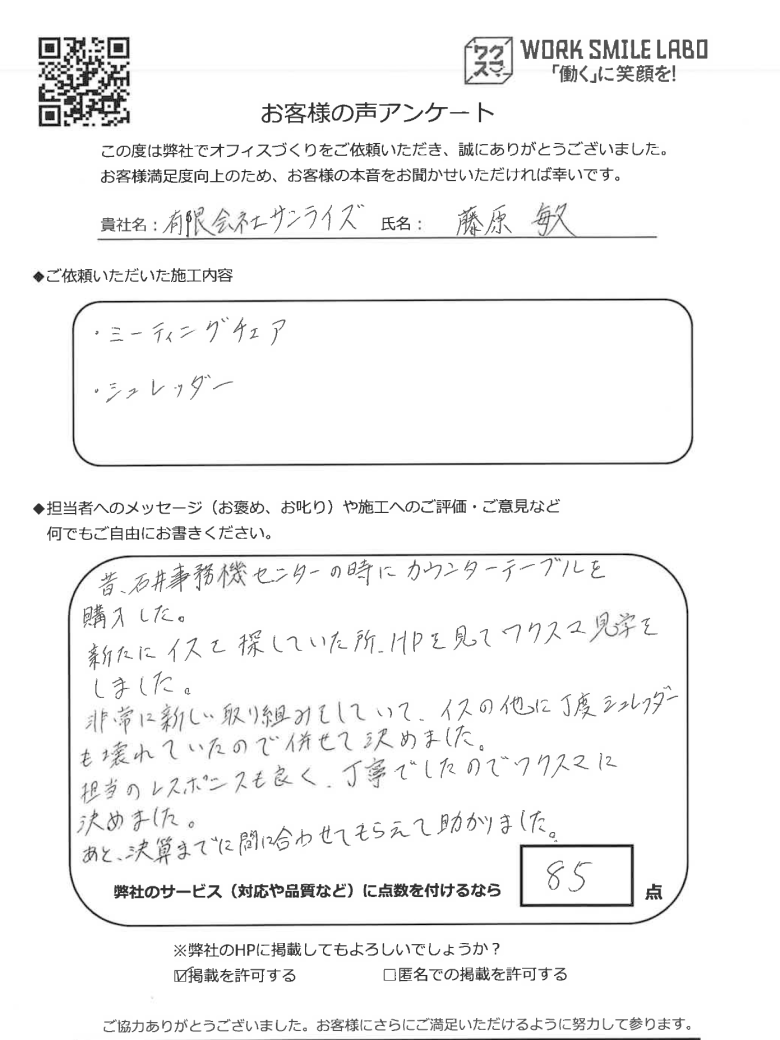 ワクスマ
WORK SMILE LABO
「働く」に笑顔を!
お客様の声アンケート
この度は弊社でオフィスづくりをご依頼いただき、誠にありがとうございました。
お客様満足度向上のため、お客様の本音をお聞かせいただければ幸いです。
貴社名：有限会社サンライズ 氏名： 藤原 敏
◆ご依頼いただいた施工内容
・ミーティングチェア
・シュレッダー
◆担当者へのメッセージ（お褒め、お叱り）や施工へのご評価・ご意見など
何でもご自由にお書きください。
昔、石井事務機センターの時にカウンターテーブルを
購入した。
新たにイスを探していた所、HPを見てワクスマ見学を
しました。
非常に新しい取り組みをしていて、イスの他に丁度シュレッダー
も壊れていたので併せて決めました。
担当のレスポンスも良く、丁寧でしたのでワクスマに
決めました。
あと、決算までに間に合わせてもらえて助かりました。
弊社のサービス（対応や品質など）に点数を付けるなら 85 点
※弊社のHPに掲載してもよろしいでしょうか？
☑掲載を許可する □匿名での掲載を許可する
ご協力ありがとうございました。お客様にさらにご満足いただけるように努力して参ります。